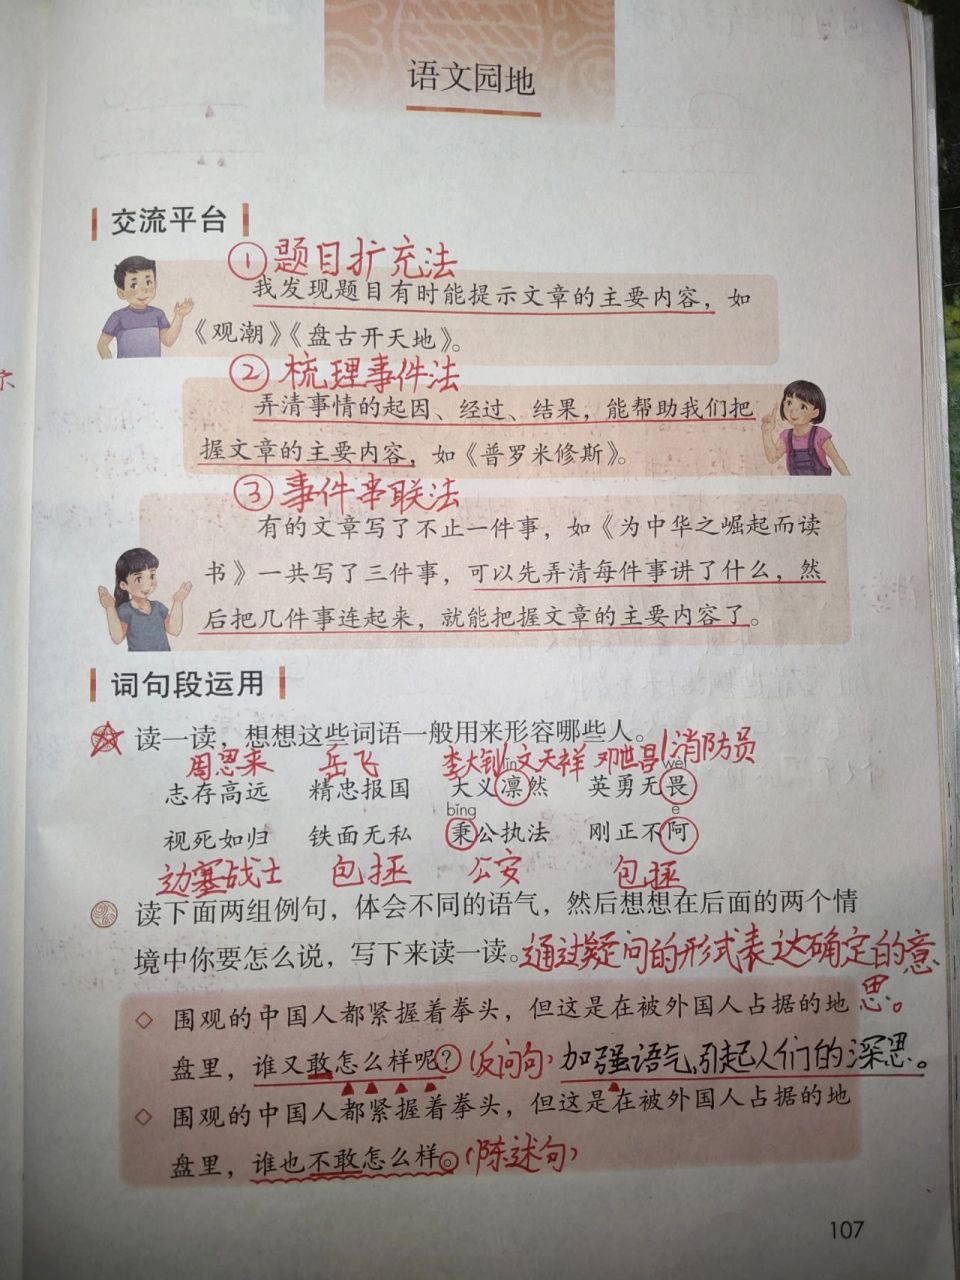 语文园地
交流平台
①题目扩充法
我发现题目有时能提示文章的主要内容，如
《观潮》《盘古开天地》。
②梳理事件法
弄清事情的起因、经过、结果，能帮助我们把
握文章的主要内容，如《普罗米修斯》。
③事件串联法
有的文章写了不止一件事，如《为中华之崛起而读
书》一共写了三件事，可以先弄清每件事讲了什么，然
后把几件事连起来，就能把握文章的主要内容了。
词句段运用
读一读，想想这些词语一般用来形容哪些人。
周恩来 岳飞 李大钊 文天祥 邓世昌 消防员
lǐn wèi
志存高远 精忠报国 大义凛然 英勇无畏
bǐng ē
视死如归 铁面无私 秉公执法 刚正不阿
边塞战士 包拯 公安 包拯
读下面两组例句，体会不同的语气，然后想想在后面的两个情
境中你要怎么说，写下来读一读。通过疑问的形式表达确定的意
思。
围观的中国人都紧握着拳头，但这是在被外国人占据的地
盘里，谁又敢怎么样呢？（反问句）加强语气，引起人们的深思。
围观的中国人都紧握着拳头，但这是在被外国人占据的地
盘里，谁也不敢怎么样。（陈述句）
107